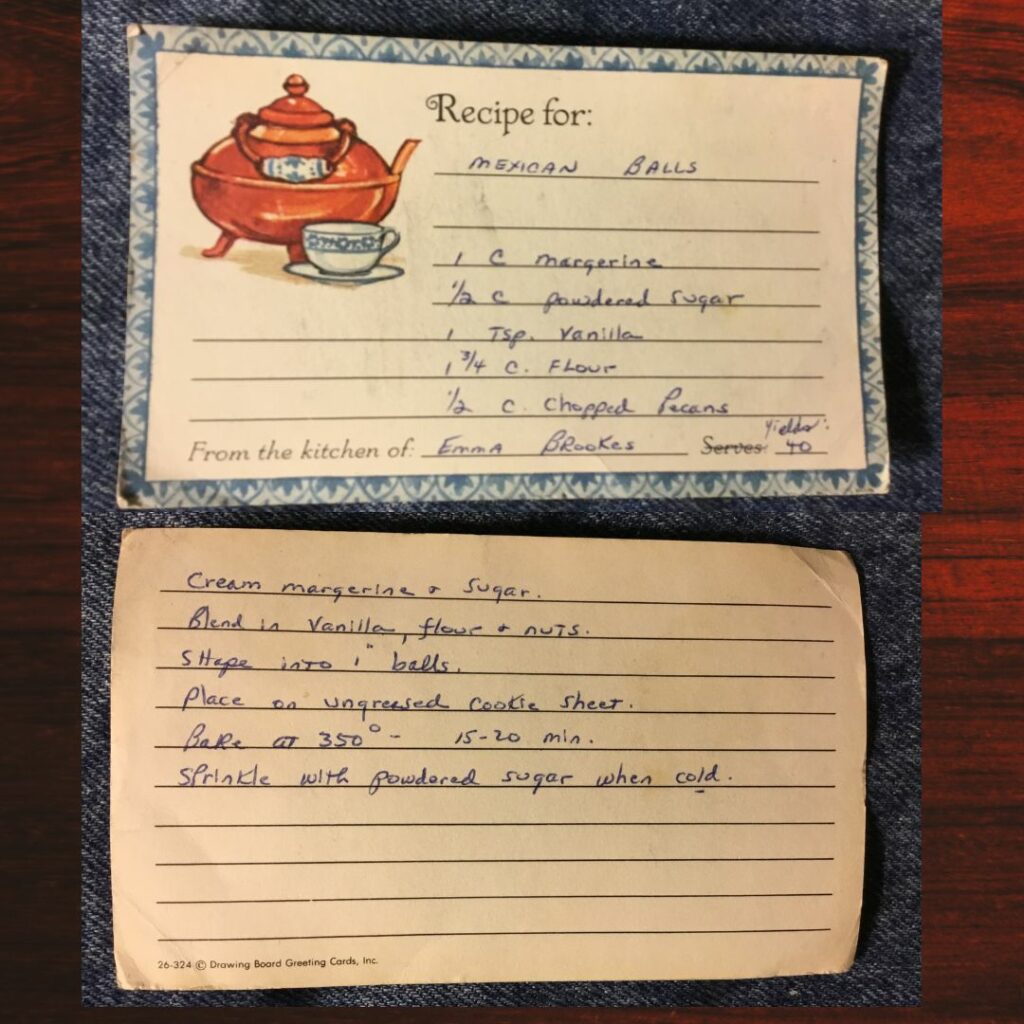 Recipe for:
MEXICAN BALLS
1 C margerine
1/2 C powdered sugar
1 Tsp. Vanilla
1 3/4 C. Flour
1/2 C. Chopped Pecans
From the kitchen of: Emma Brookes Serves: Yields: 40
Cream margerine & sugar.
Blend in Vanilla, flour & nuts.
Shape into 1" balls.
Place on ungreased cookie sheet.
Bake at 350° - 15-20 min.
Sprinkle with powdered sugar when cold.
26-324 © Drawing Board Greeting Cards, Inc.